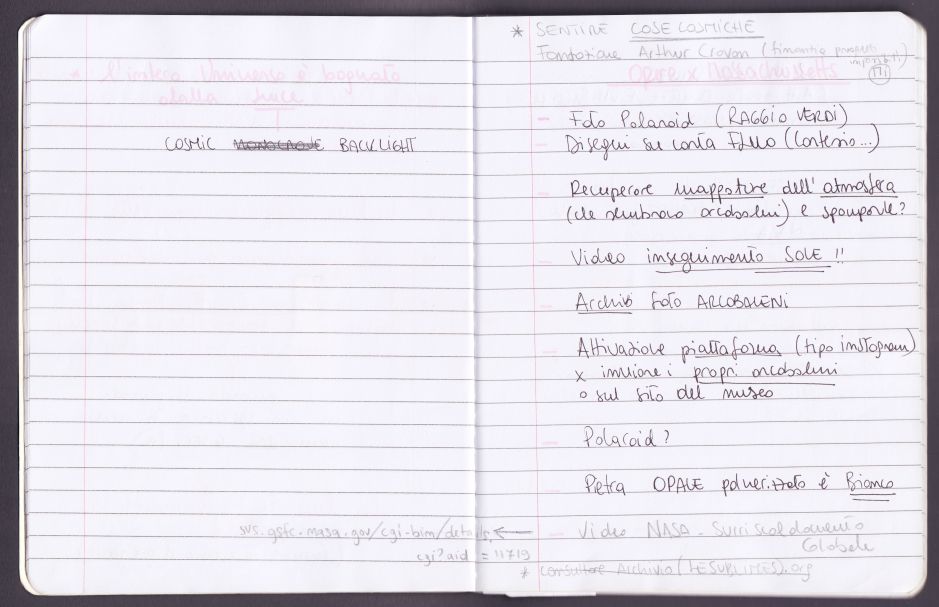 * l'intero Universo è bagnato
dalla luce
COSMIC MONOCROME BACKLIGHT
svs.gsfc.nasa.gov/cgi-bin/details.
cgi?aid = 11719
* SENTIRE COSE COSMICHE
Fondazione Arthur Cravan (finanzia progetti
impossibili)
Opere x Massachussetts
- Foto Polaroid (RAGGIO VERDE)
Disegni su carta FILLO (Conterio...)
- Recuperare mappature dell'atmosfera
(che sembrano arcobaleni) e stamparle?
- Video inseguimento SOLE !!
- Archivio foto ARCOBALENI
- Attivazione piattaforma (tipo instagram)
x inviare i propri arcobaleni
o sul sito del museo
- Polaroid?
- Pietra OPALE polverizzato è Bianco
- Video NASA. Surriscaldamento
Globale
* consultare Archivio (LESUBLIMES).org